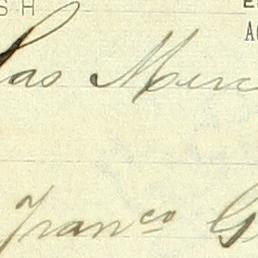 SH E
Las Merc
Franco G